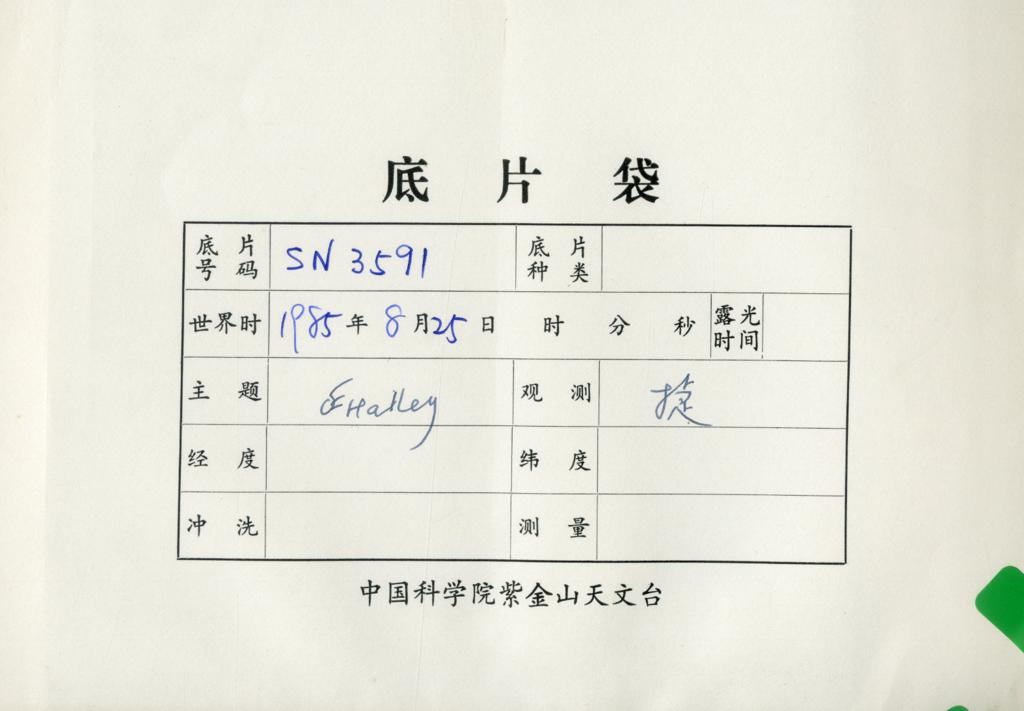 底片袋
底片号码 SN 3591 底片种类
世界时 1985年 8月25日 时 分 秒 露光时间
主题 Halley 观测 捷
经度 纬度
冲洗 测量
中国科学院紫金山天文台